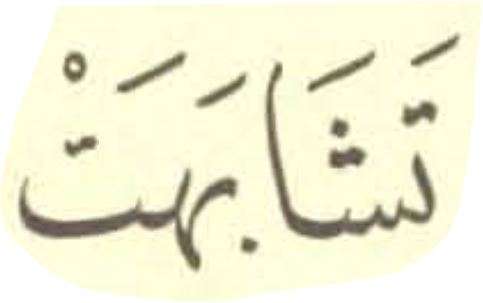 تَشَابَهَتْ